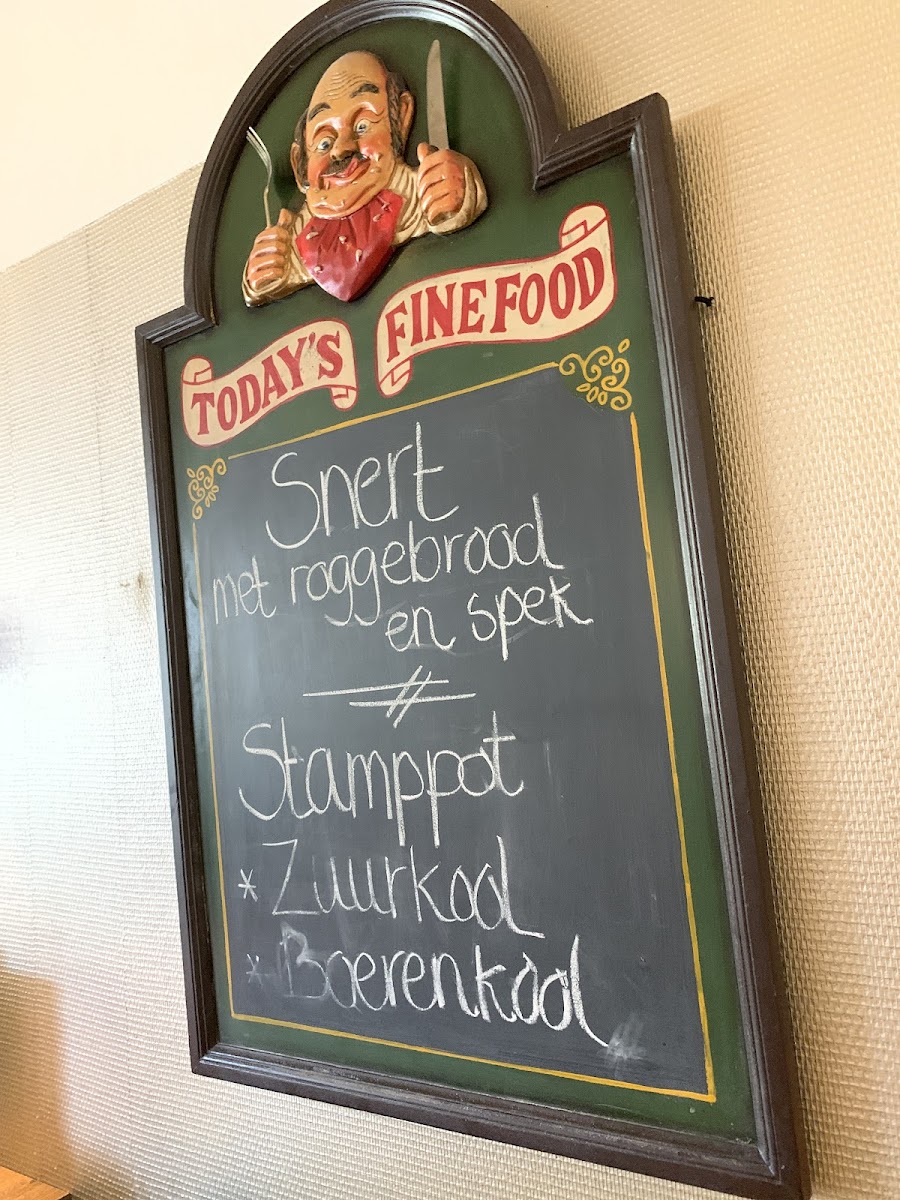 TODAY'S FINE FOOD
Snert
met roggebrood
en spek
Stamppot
* Zuurkool
* Boerenkool